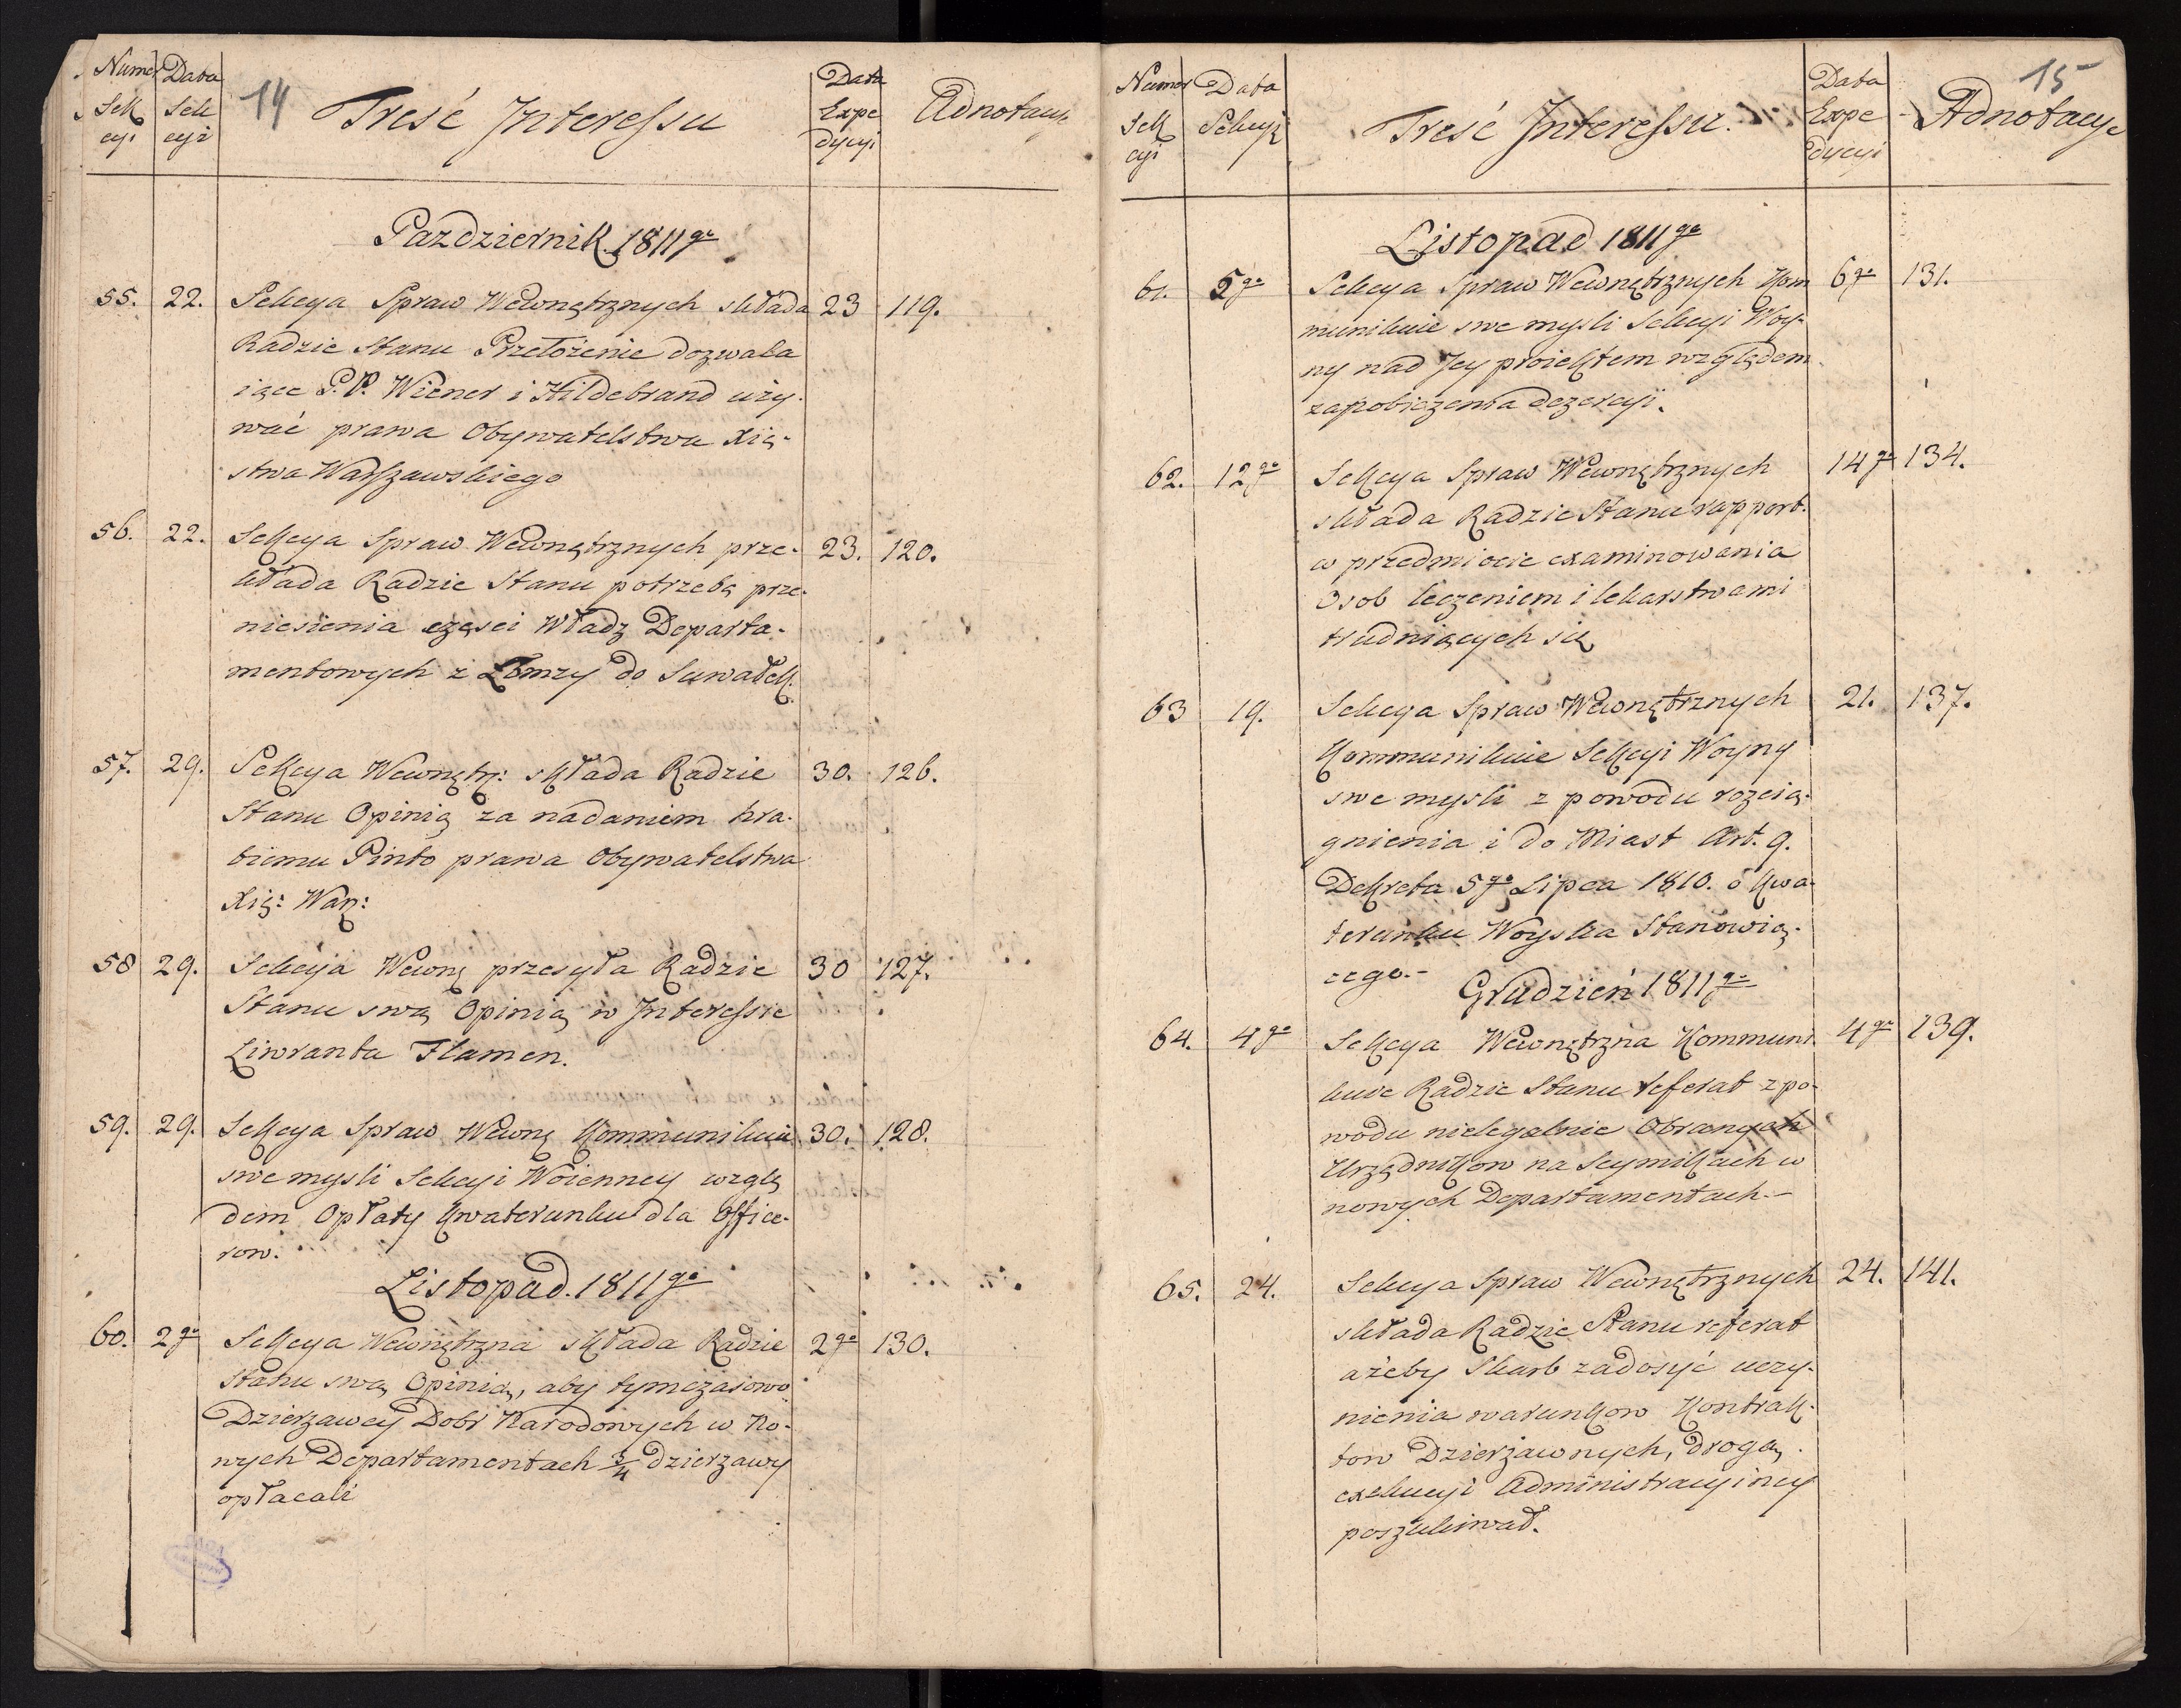 14
Numer Data Treść Interessu Data Adnotacye
Sek Sek Expe
cyi cyi dycyi
Pazdziernik 1811go
55. 22. Sekcya Spraw Wewnętrznych składa 23 119.
Radzie Stanu Przełożenie dozwala
iące P.P. Wiener i Hildebrand uży-
wać prawa Obywatelstwa Xię-
stwa Warszawskiego
56. 22. Sekcya Spraw Wewnętrznych prze- 23. 120.
kłada Radzie Stanu potrzebę prze-
niesienia części Władz Departa-
mentowych z Łomzy do Suwałek.
57. 29. Sekcya Wewnętrz: składa Radzie 30. 126.
Stanu Opinią za nadaniem hra-
biemu Pinto prawa Obywatelstwa
Xię: War:
58 29. Sekcya Wewnę przesyła Radzie 30 127.
Stanu swą Opinią w Interessie
Liwranta Flamen.
59. 29. Sekcya Spraw Wewnę Kommunikuie 30. 128.
swe mysli Sekcyi Woienney wzglę
dem Opłaty Kwaterunku dla Office-
row.
Listopad. 1811go
60. 2go Sekcya Wewnętrzna składa Radzie 2go 130.
Stanu swą Opinią, aby tymczasowo
Dzierzawcy Dobr Narodowych w No-
wych Departamentach 3/4 dzierzawy
opłacali
15
Numer Data Treść Interessu. Data Adnotacye
Sek Sekcyi Expe
cyi dycyi
Listopad 1811go
61. 5go Sekcya Spraw Wewnętrznych Kom 6go 131.
munikuie swe mysli Sekcyi Woy-
ny nad Jey proiektem względem
zapobieżenia dezercyi.
62. 12go Sekcya Spraw Wewnętrznych 14go 134.
składa Radzie Stanu rapport.
w przedmiocie examinowania
Osob leczeniem i lekarstwami
trudniących się
63 19. Sekcya Spraw Wewnętrznych 21. 137.
Kommunikuie Sekcyi Woyny
swe mysli z powodu rozcią-
gnienia i do Miast Art. 9.
Dekretu 5go Lipca 1810. o Kwa-
terunku Woyska Stanowią-
cego.-
Grudzień 1811go
64. 4go Sekcya Wewnętrzna Kommuni 4go 139.
kuie Radzie Stanu referat z po-
wodu nielegalnie Obranych
Urzędnikow na Seymikach w
nowych Departamentach.-
65. 24. Sekcya Spraw Wewnętrznych 24. 141.
składa Radzie Stanu referat
ażeby Skarb zadosyć uczy-
nienia warunkow Kontrak-
tow Dzierżawnych, drogą
exekucyi Administracyiney
poszukiwał.